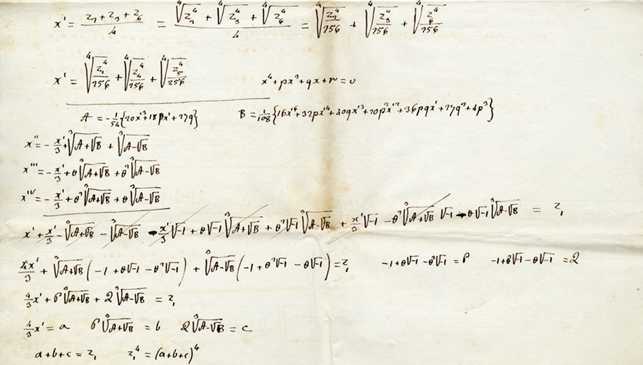 x' = (z₂ + z₃ + z₄)/4 = (∜z₂⁴ + ∜z₃⁴ + ∜z₄⁴)/4 = ∜(z₂⁴/256) + ∜(z₃⁴/256) + ∜(z₄⁴/256)
x' = ∜(z₂⁴/256) + ∜(z₃⁴/256) + ∜(z₄⁴/256) x⁴+px²+qx+r=0
A = -1/54{20x'³+18px'+27q} B = 1/108{16x'⁶+32px'⁴+40qx'³+20p²x'²+36pqx'+27q²+4p³}
x'' = -x'/3 + ∛(A+√B) + ∛(A-√B)
x''' = -x'/3 + θ∛(A+√B) + θ²∛(A-√B)
x'ⱽ = -x'/3 + θ²∛(A+√B) + θ∛(A-√B)
x' + x'/3 - ∛(A+√B) - ∛(A-√B) - x'/3 √-1 + θ√-1 ∛(A+√B) + θ²√-1 ∛(A-√B) + x'/3 √-1 - θ²∛(A+√B) √-1 - θ√-1 ∛(A-√B) = z₁
4x'/3 + ∛(A+√B) (-1+θ√-1-θ²√-1) + ∛(A-√B) (-1+θ²√-1-θ√-1) = z₁ -1+θ√-1-θ²√-1 = P -1+θ²√-1-θ√-1 = Q
4/3 x' + P∛(A+√B) + Q∛(A-√B) = z₁
4/3 x' = a P∛(A+√B) = b Q∛(A-√B) = c
a+b+c = z₁ z₁⁴ = (a+b+c)⁴